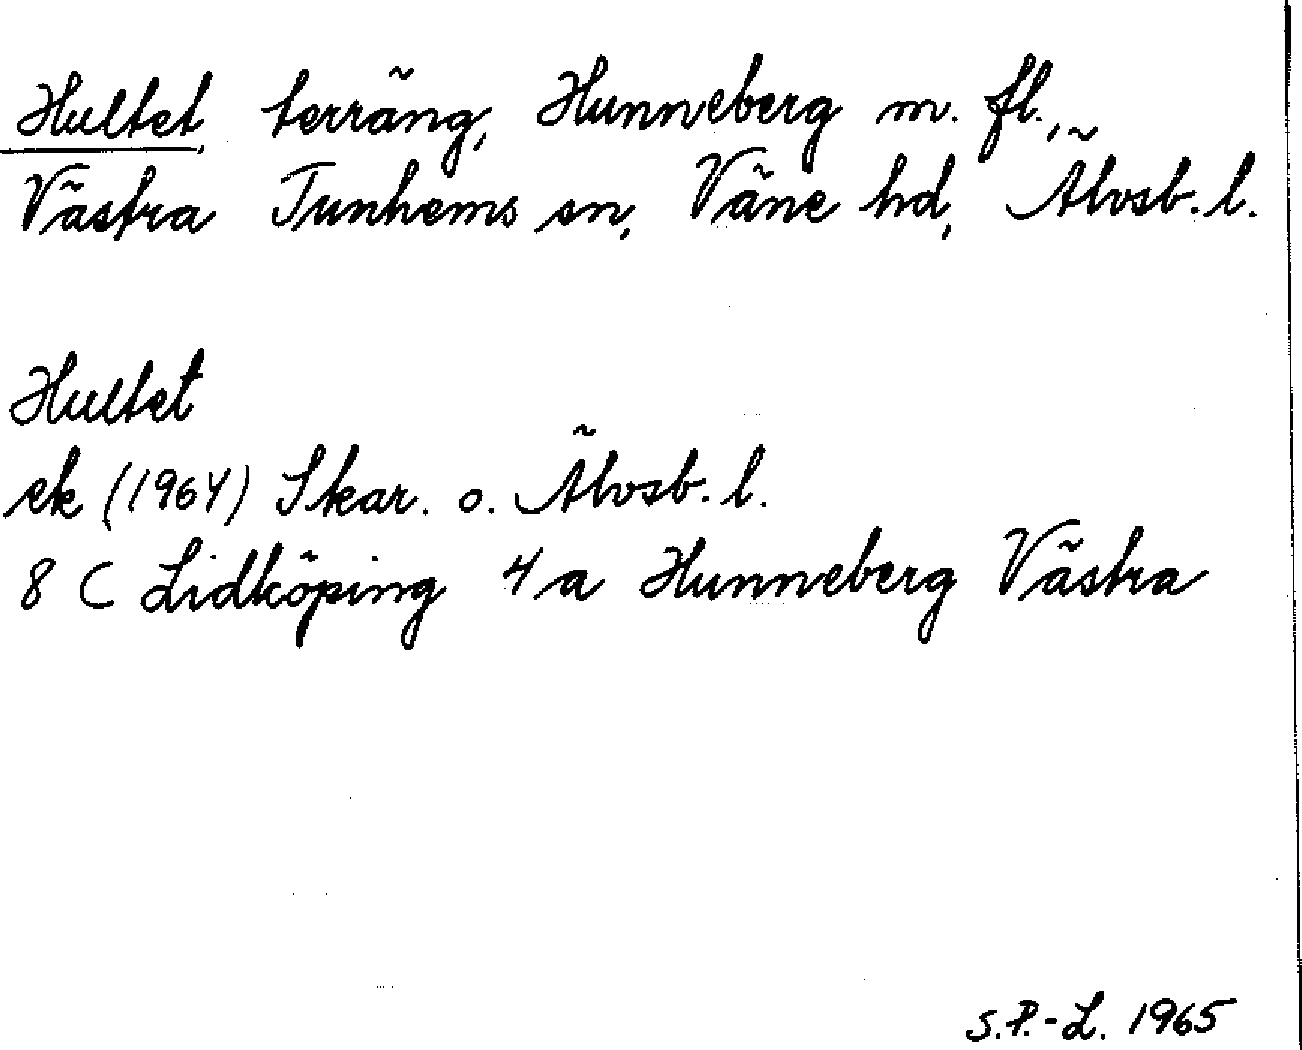 Hultet, terräng, Hunneberg m. fl.,
Västra Tunhems sn, Väne hd, Älvsb. l.
Hultet
ek (1964) Skar. o. Älvsb. l.
8 C Lidköping 4 a Hunneberg Västra
S.P.-L. 1965